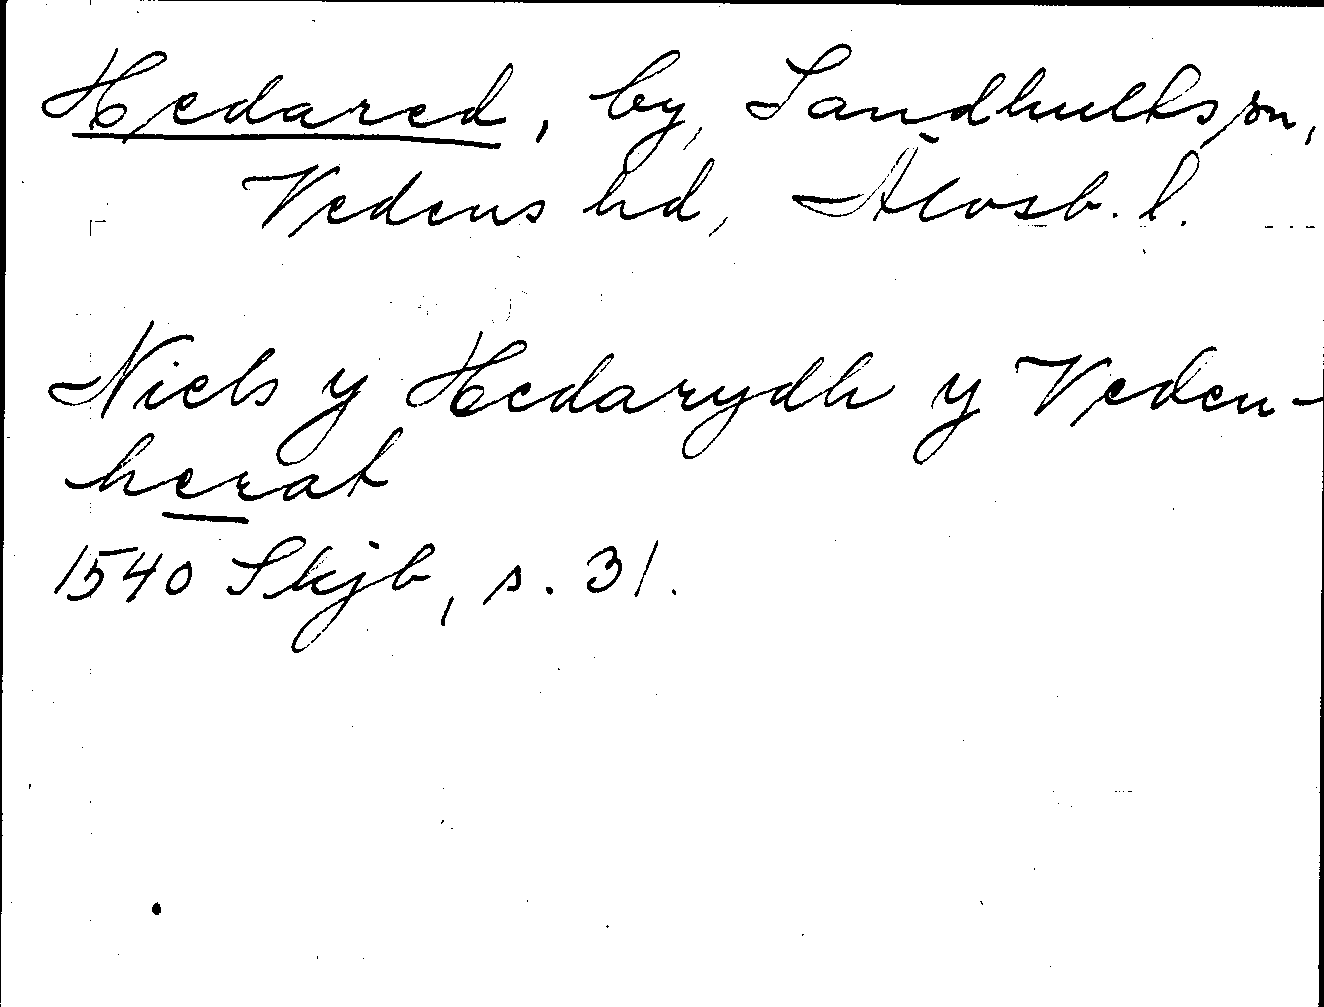 Hedared, by, Sandhults sn,
Vedens hd, Älvsb. l.
Niels y Hedarydh y Veden-
herat
1540 Skjb, s. 31.